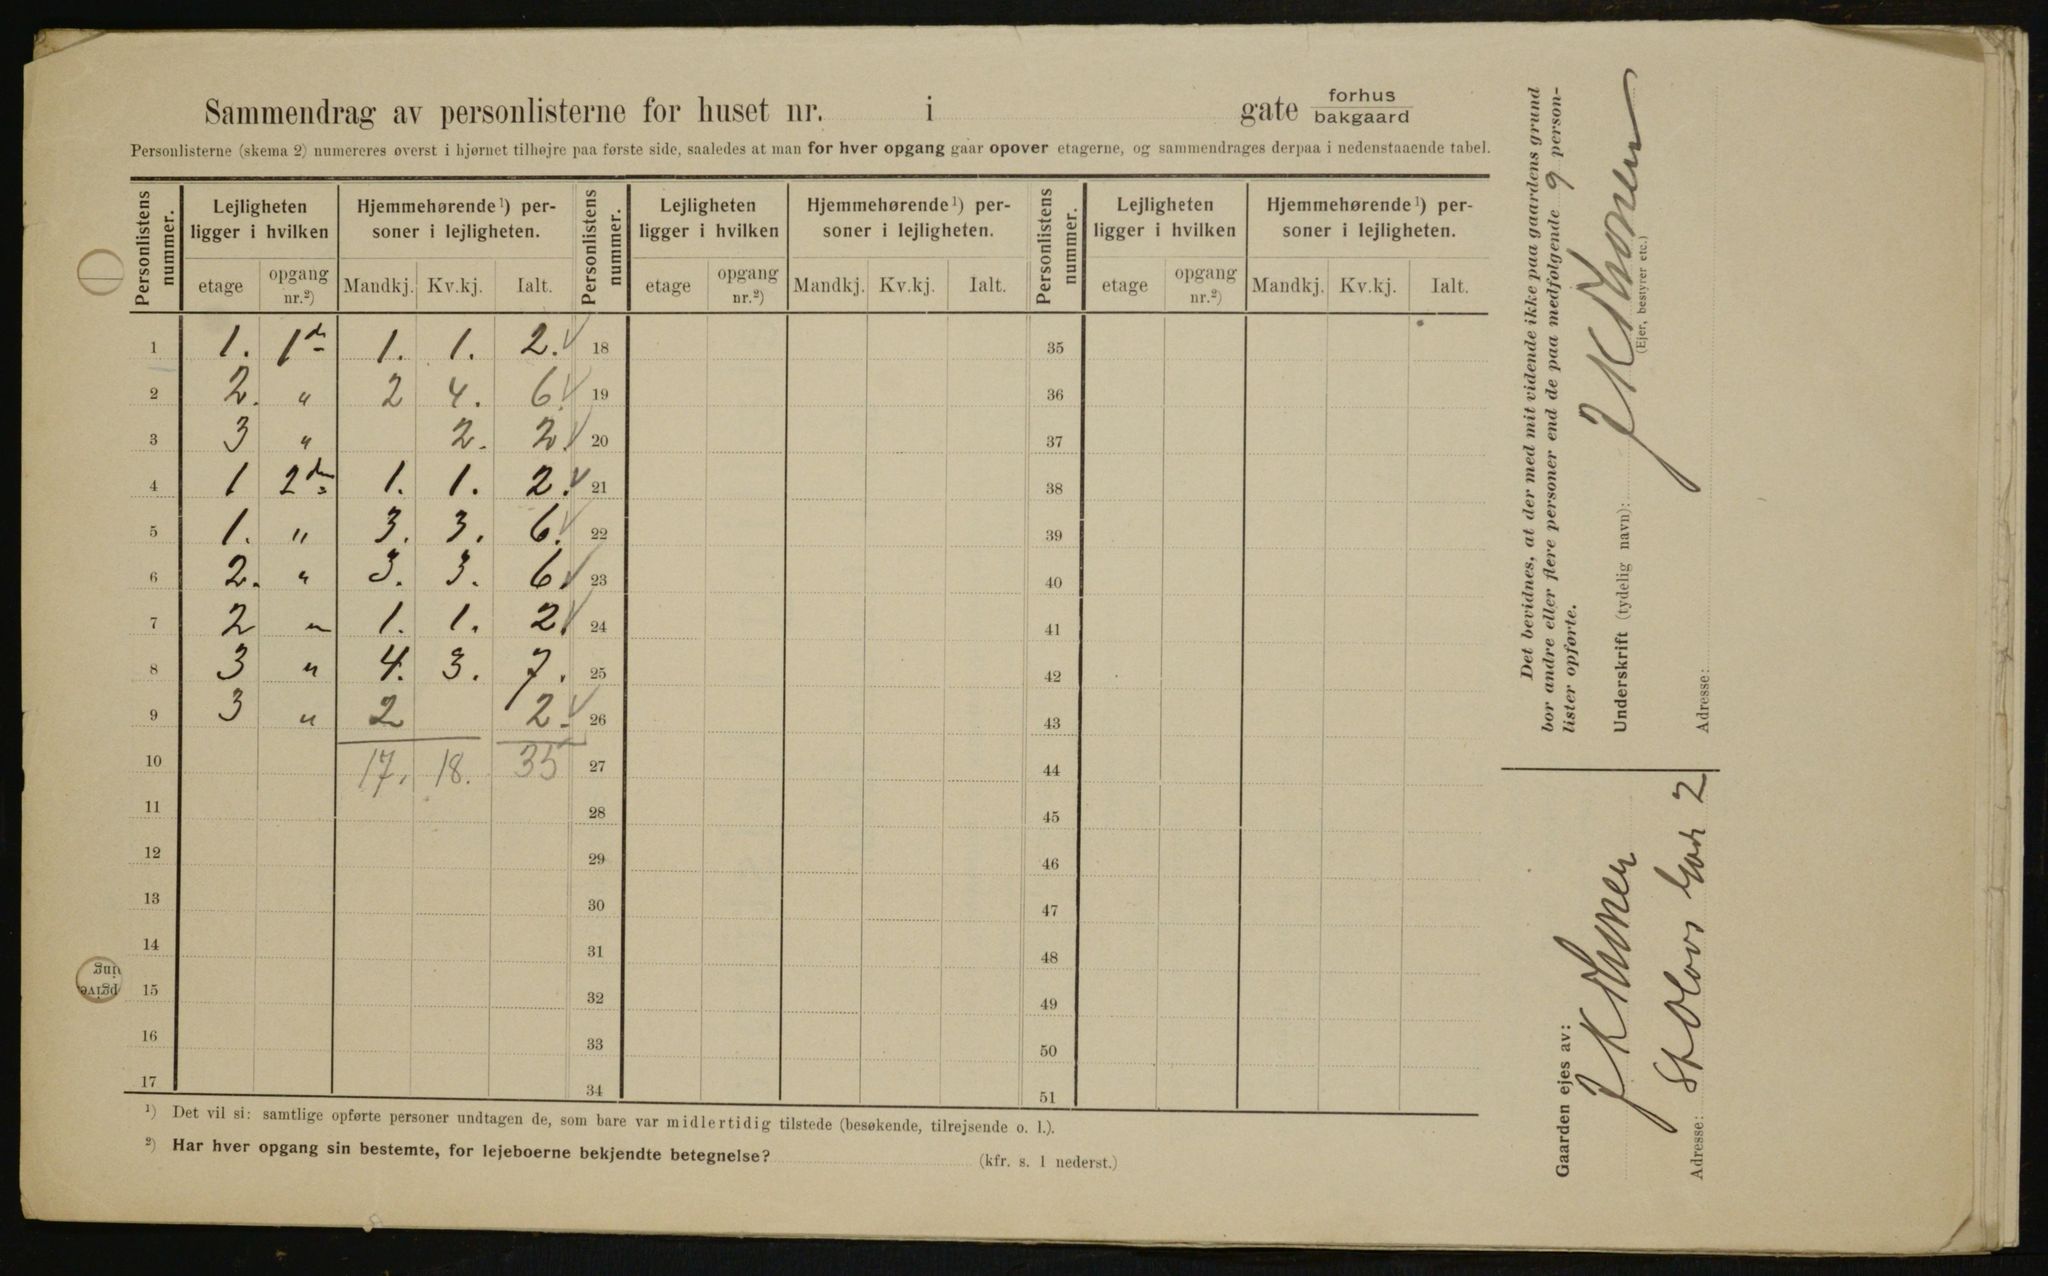 Sammendrag av personlisterne for huset nr. i gate forhus bakgaard
Personlisterne (skema 2) numereres øverst i hjørnet tilhøjre paa første side, saaledes at man for hver opgang gaar opover etagerne, og sammendrages derpaa i nedenstaaende tabel.
Personlistens nummer. Lejligheten ligger i hvilken Hjemmehørende ¹) personer i lejligheten. Personlistens nummer. Lejligheten ligger i hvilken Hjemmehørende ¹) personer i lejligheten. Personlistens nummer. Lejligheten ligger i hvilken Hjemmehørende ¹) personer i lejligheten.
etage opgang nr.²) Mandkj. Kv.kj. Ialt. etage opgang nr.²) Mandkj. Kv.kj. Ialt. etage opgang nr.²) Mandkj. Kv.kj. Ialt.
1 1. 1 1. 1. 2. 18 35
2 2. " 2 4. 6. 19 36
3 3 " 2. 2. 20 37
4 1 2 1. 1. 2. 21 38
5 1. " 3. 3. 6. 22 39
6 2. " 3. 3. 6. 23 40
7 2 " 1. 1. 2. 24 41
8 3 " 4. 3. 7. 25 42
9 3 " 2 2. 26 43
10 17. 18. 35 27 44
11 28 45
12 29 46
13 30 47
14 31 48
15 32 49
16 33 50
17 34 51
¹) Det vil si: samtlige opførte personer undtagen de, som bare var midlertidig tilstede (besøkende, tilrejsende o. l.).
²) Har hver opgang sin bestemte, for lejeboerne bekjendte betegnelse? (kfr. s. 1 nederst.)
Det bevidnes, at der med mit vidende ikke paa gaardens grund
bor andre eller flere personer end de paa medfølgende 9 person-
lister opførte.
Underskrift (tydelig navn):
(Ejer, bestyrer etc.)
Adresse:
Gaarden ejes av:
Adresse: St Olavs 2